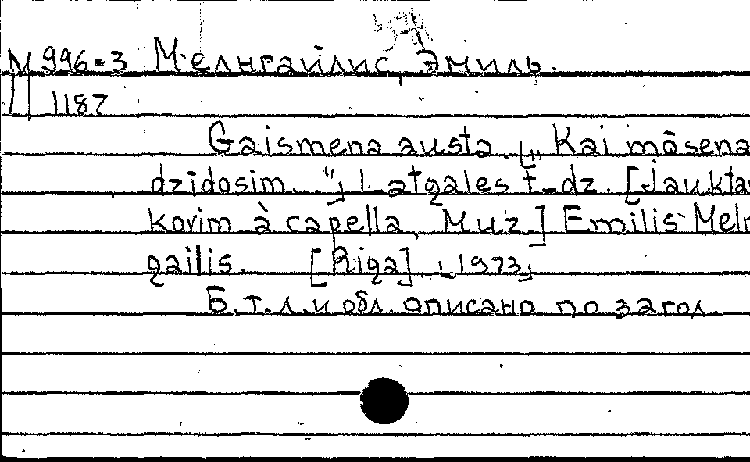 М 996-3 Мелнгайлис, Эмиль.
1187
Gaismena austa. [„Kai môsena
dzidosim..."] Latgales t-dz. [Jaukta
korim à capella. Muz.] Emilis Meln
gailis. [Riga] [1973]
Б.т.л. и обл. описано по загол.